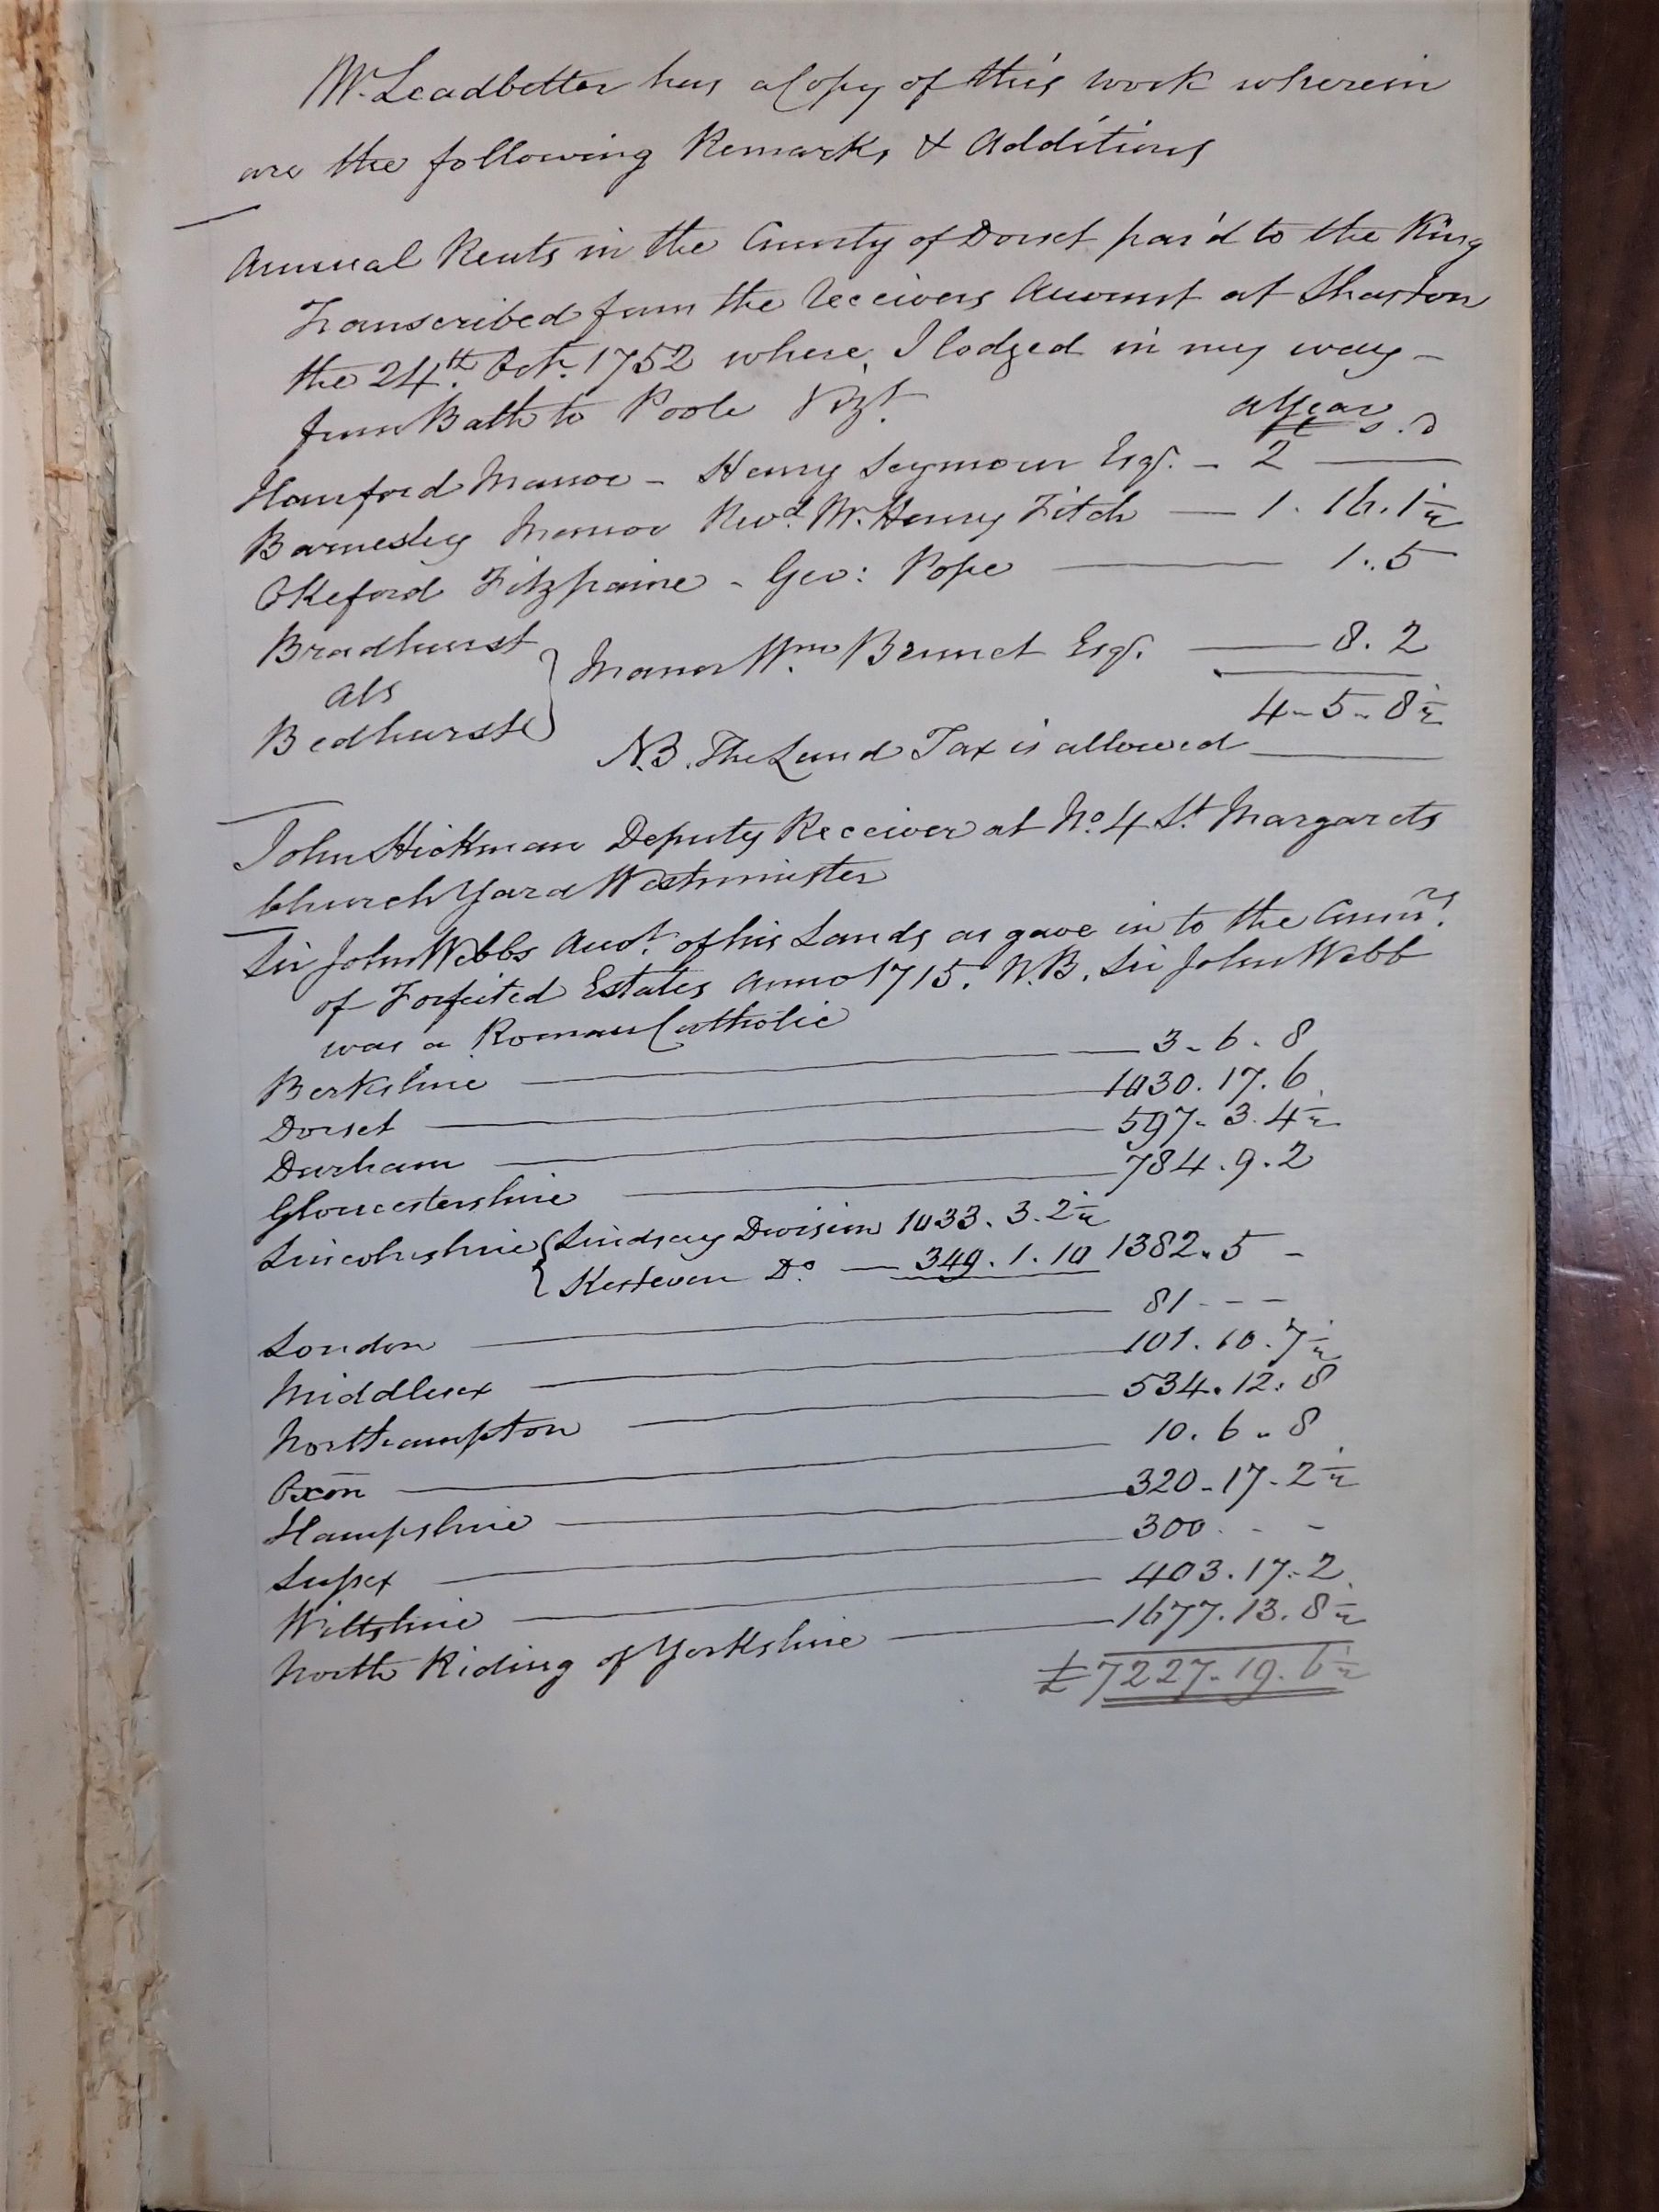 Mr. Leadbetter has a Copy of this work wherein
are the following Remarks & Additions
Annual Rents in the County of Dorset paid to the King
Transcribed from the Receivers Account at Shaston
the 24th. Octr. 1752 where I lodged in my way
from Bath to Poole Vizt.
a Year
£ s. D
Hanford Manor - Henry Seymour Esqr. - 2 —
Barnesley Manor Revd. Mr. Henry Fitch — 1. 16. 1½
Okeford Fitzpaine - Geo: Pope — 1.. 5
Bradhurst
als
Bedhurste } Manor Wm. Bennet Esqr. — 8. 2
4 - 5 - 8½
N.B. The Land Tax is allowed
John Hickman Deputy Receiver at No. 4 St. Margarets
Church Yard Westminster
Sir John Webbs Acct. of his Lands as gave in to the Commrs.
of Forfeited Estates Anno 1715. N.B. Sir John Webb
was a Roman Catholic
Berkshire — 3 - 6 - 8
Dorset — 1030. 17. 6
Durham — 597 - 3. 4½
Gloucestershire — 784. 9. 2
Lincolnshire { Lindsay Division 1033. 3. 2½
{ Kesteven Do. — 349. 1. 10 1382 " 5 -
London — 81 - - -
Middlesex — 101. 10. 7½
Northampton — 534. 12. 8
Oxōn — 10. 6 " 8
Hampshire — 320 - 17 - 2½
Sussex — 300 - -
Wiltshire — 403. 17. 2
North Riding of Yorkshire — 1677. 13. 8½
£7227. 19. 6½